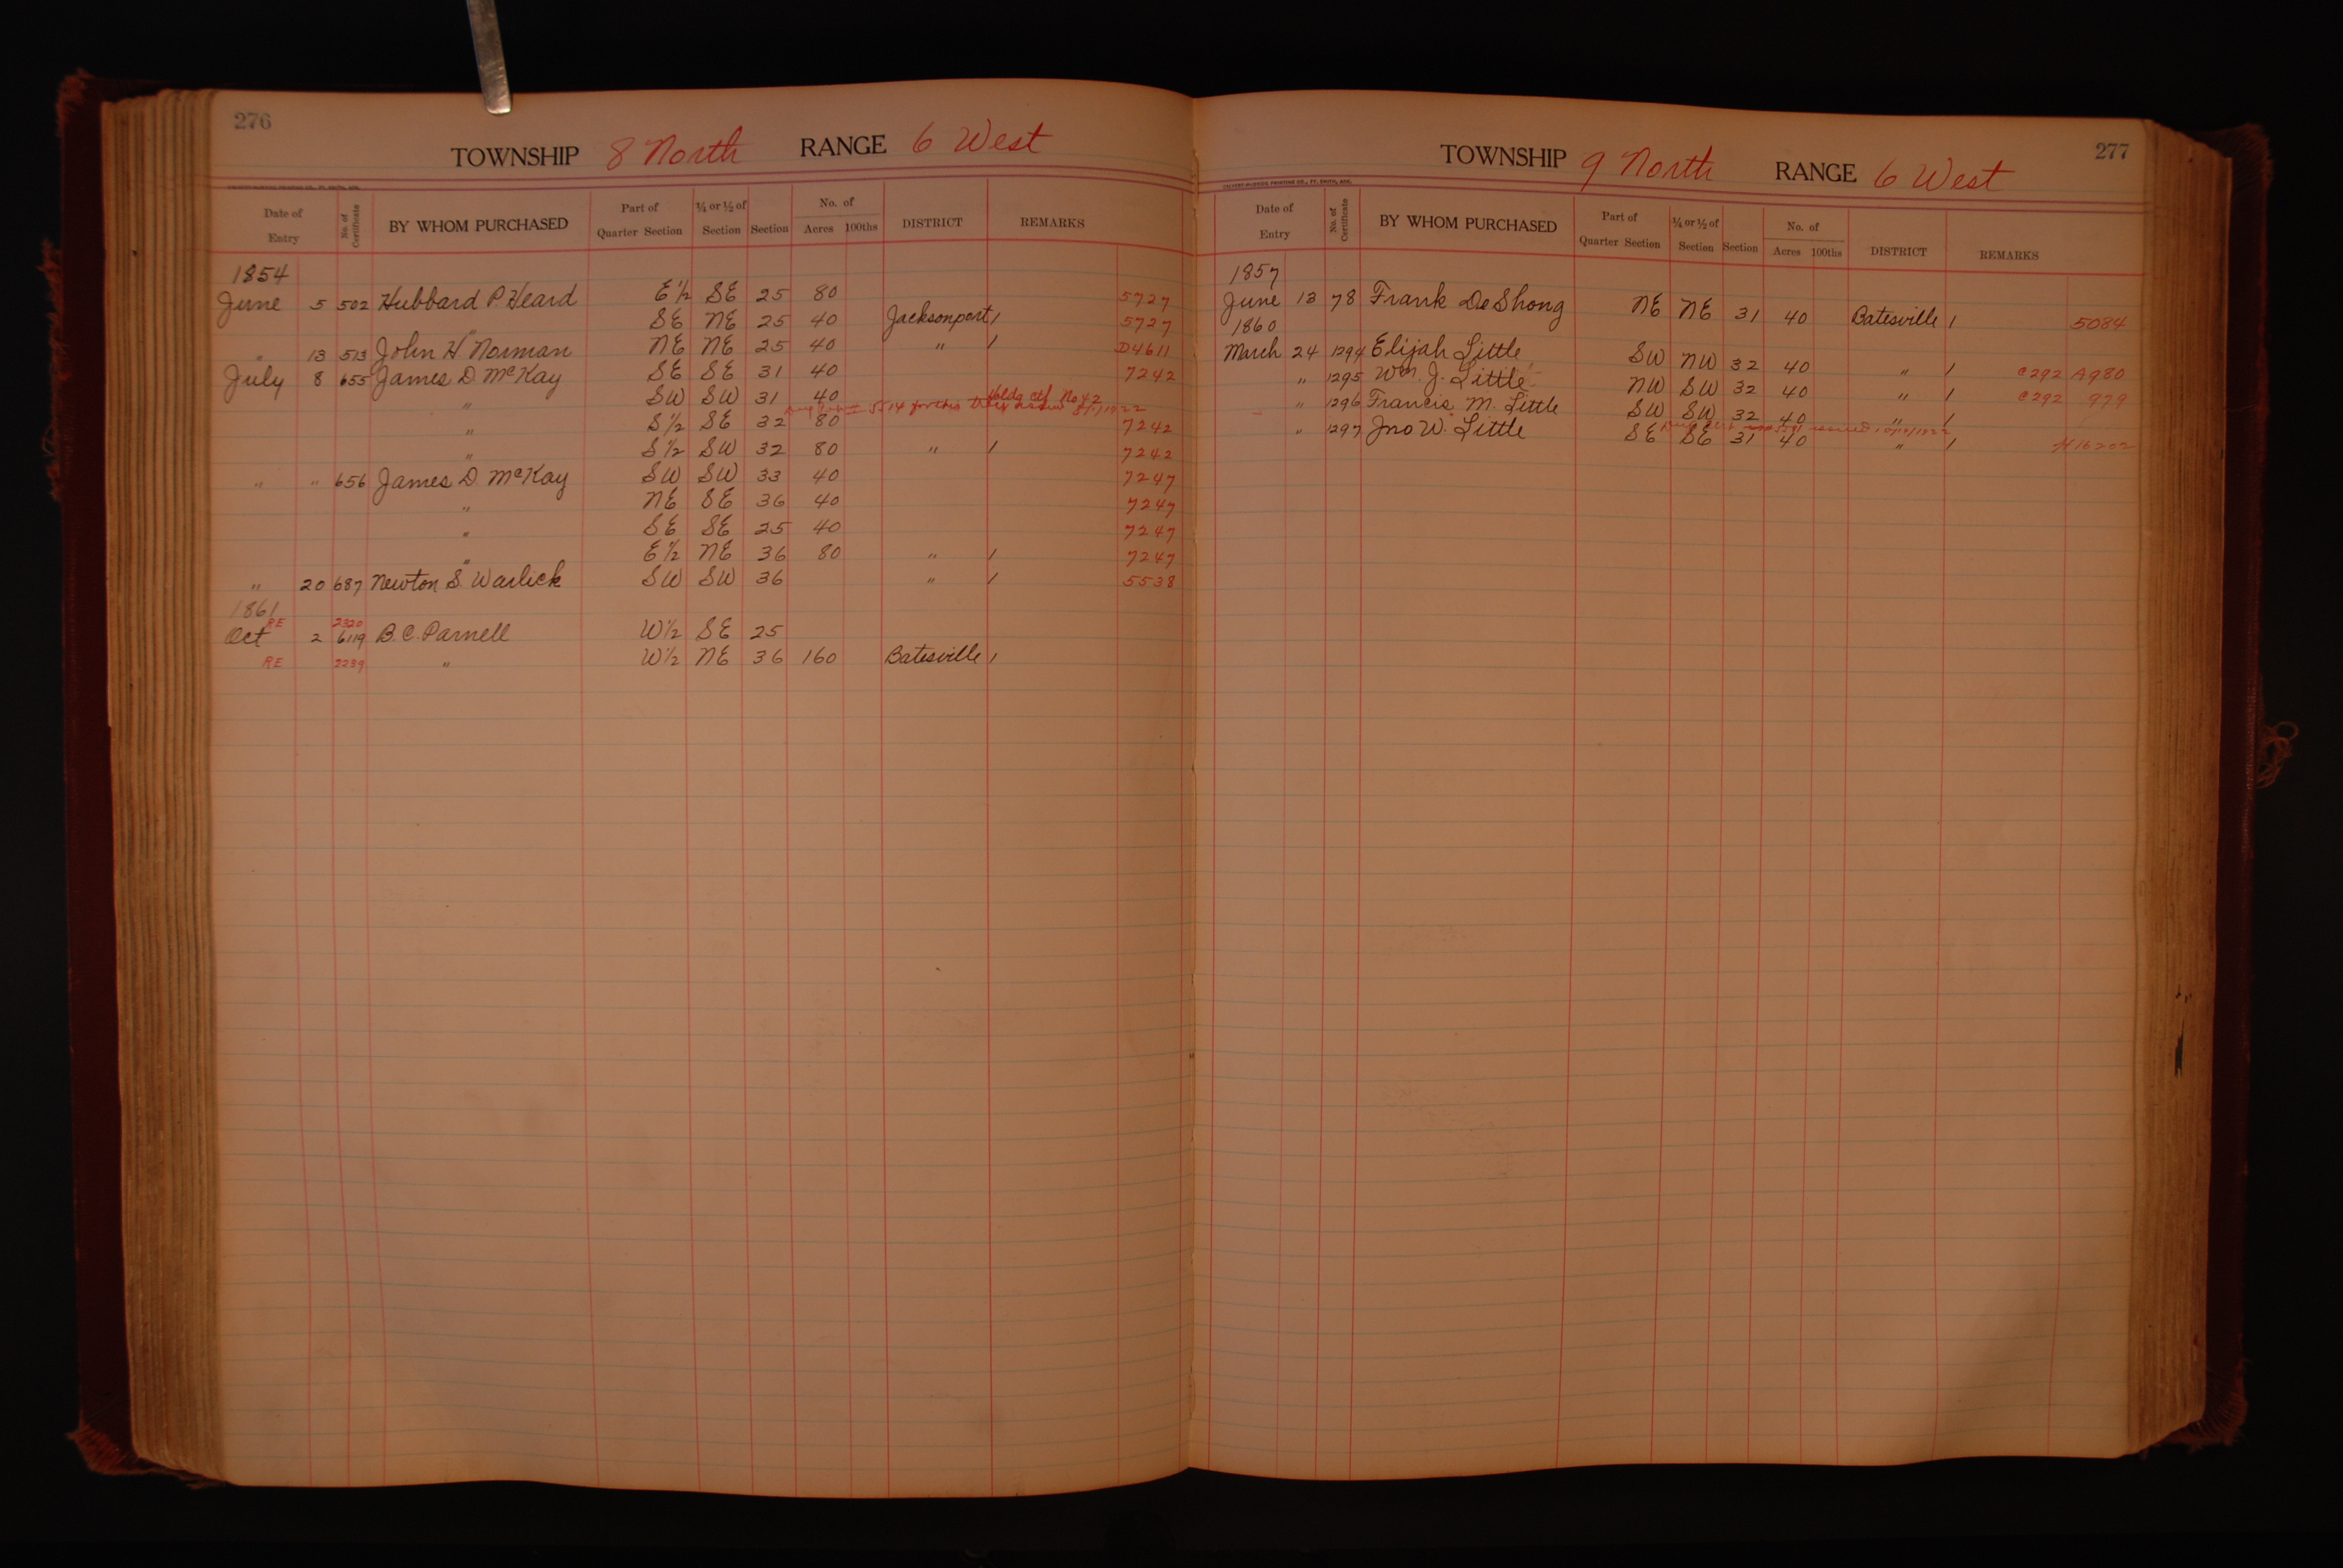 276
TOWNSHIP 8 North RANGE 6 West
Date of Entry No. of Certificate BY WHOM PURCHASED Part of Quarter Section ¼ or ½ of Section Section No. of Acres 100ths DISTRICT REMARKS
1854
June 5 502 Hubbard P. Heard E½ SE 25 80 5727
" SE NE 25 40 Jacksonport / 5727
" 13 513 John H Norman NE NE 25 40 " / D4611
July 8 655 James D McKay SE SE 31 40 7242
" SW SW 31 40 Holdg ctf No 42
5514 for this
" S½ SE 32 80 7242
" S½ SW 32 80 " / 7242
" " 656 James D McKay SW SW 33 40 7247
" NE SE 36 40 7247
" SE SE 25 40 7247
" E½ NE 36 80 " / 7247
" 20 687 Newton S. Warlick SW SW 36 " / 5538
1861
RE 2320
Oct 2 6119 B.C. Parnell W½ SE 25
RE 2239 " W½ NE 36 160 Batesville /
277
TOWNSHIP 9 North RANGE 6 West
CALVERT-McBRIDE PRINTING CO., FT. SMITH, ARK.
Date of Entry No. of Certificate BY WHOM PURCHASED Part of Quarter Section ¼ or ½ of Section Section No. of Acres 100ths DISTRICT REMARKS
1857
June 13 78 Frank DeShong NE NE 31 40 Batesville / 5084
1860
March 24 1294 Elijah Little SW NW 32 40 " / C292 A980
" 1295 Wm. J. Little NW SW 32 40 " / C292 979
" 1296 Francis M. Little SW SW 32 40 " /
" 1297 Jno W. Little SE SE 31 40 " / H16202